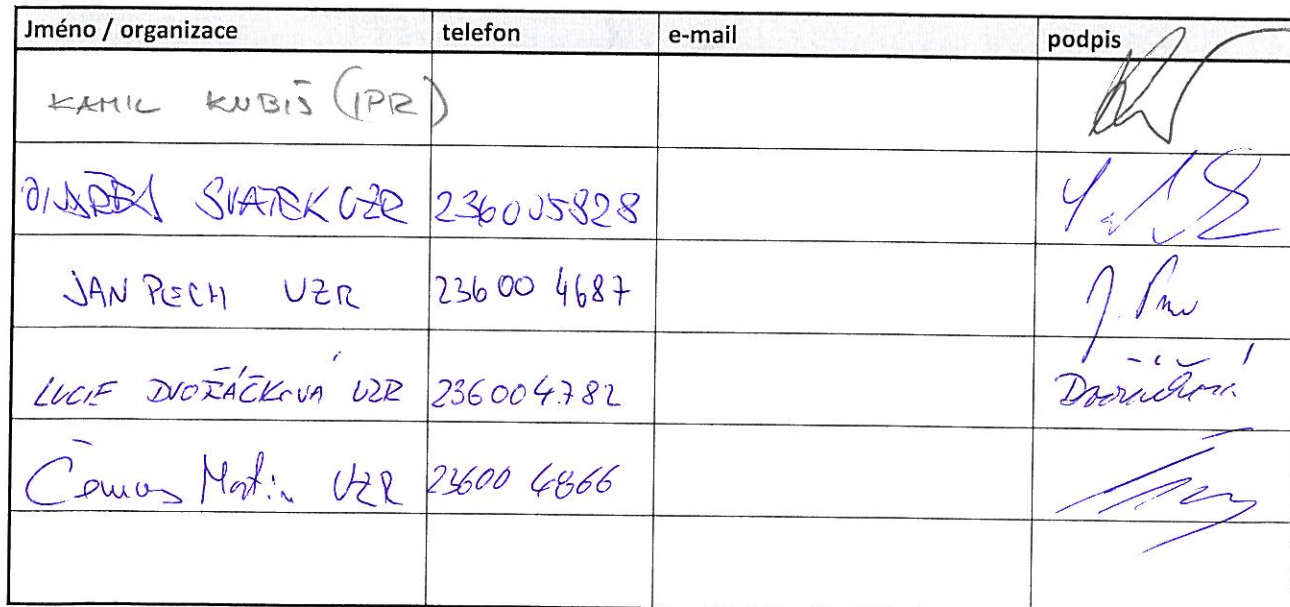 Jméno / organizace telefon e-mail podpis
KAMIL KUBIŠ (IPR)
SVATEK UZR 236005828
JAN PECH UZR 23600 4687
LUCIE DVOŘÁČKOVÁ UZR 236004782 Dvořáčková
Martin UZR 23600 4866